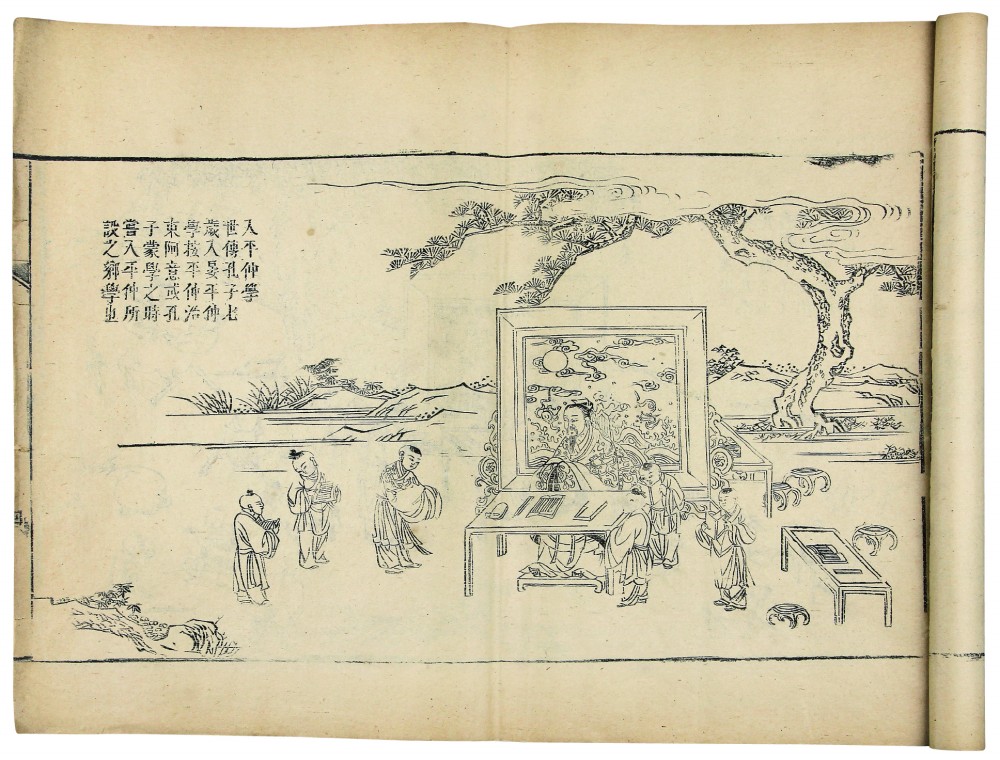 入平仲學
世傳孔子七
歲入晏平仲
學按平仲治
東阿意或孔
子蒙學之時
嘗入平仲所
設之鄉學也